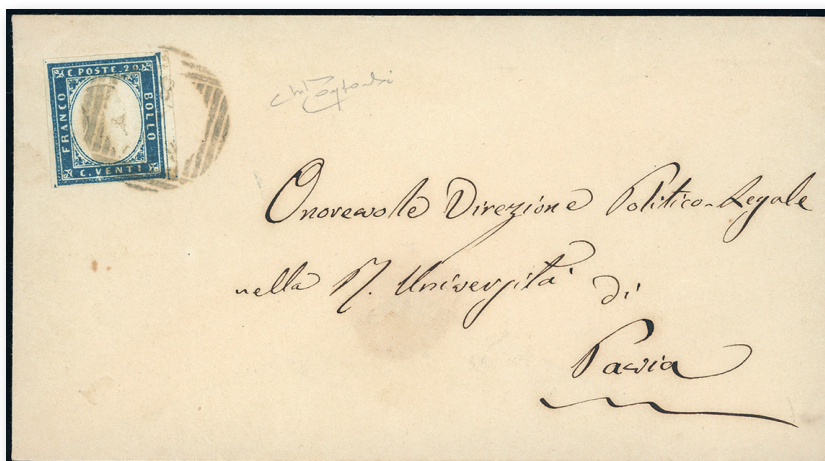 C. POSTE. 20
FRANCO
BOLLO
C. VENTI
Onorevole Direzione Politico-Legale
nella R. Università di
Pavia